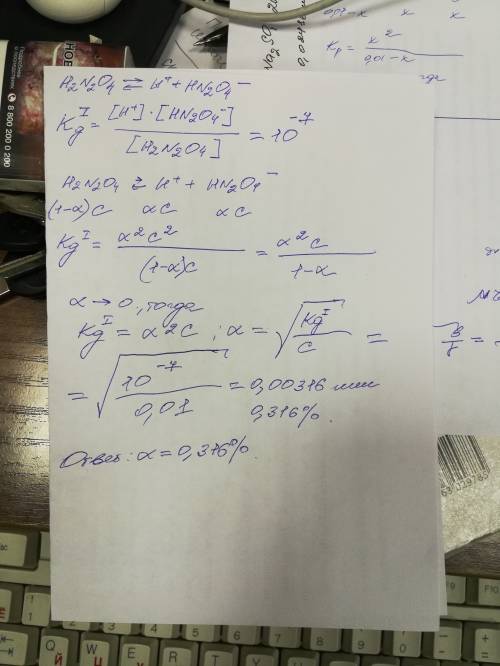 H₂N₂O₄ ⇄ H⁺ + HN₂O₄⁻
Kд^I = [H⁺]·[HN₂O₄⁻] / [H₂N₂O₄] = 10⁻⁷
H₂N₂O₄ ⇄ H⁺ + HN₂O₄⁻
(1-α)c αc αc
Kд^I = α²c² / (1-α)c = α²c / 1-α
α → 0, тогда
Kд^I = α²c ; α = √(Kд^I / c) =
= √(10⁻⁷ / 0,01) = 0,00316 или
0,316%.
Ответ: α = 0,316%.
x x
Kp = x² / 0,01-x
где
Na₂SO
8 800 200 0 200
Esc
Q W E R T Y U
Й Ц У